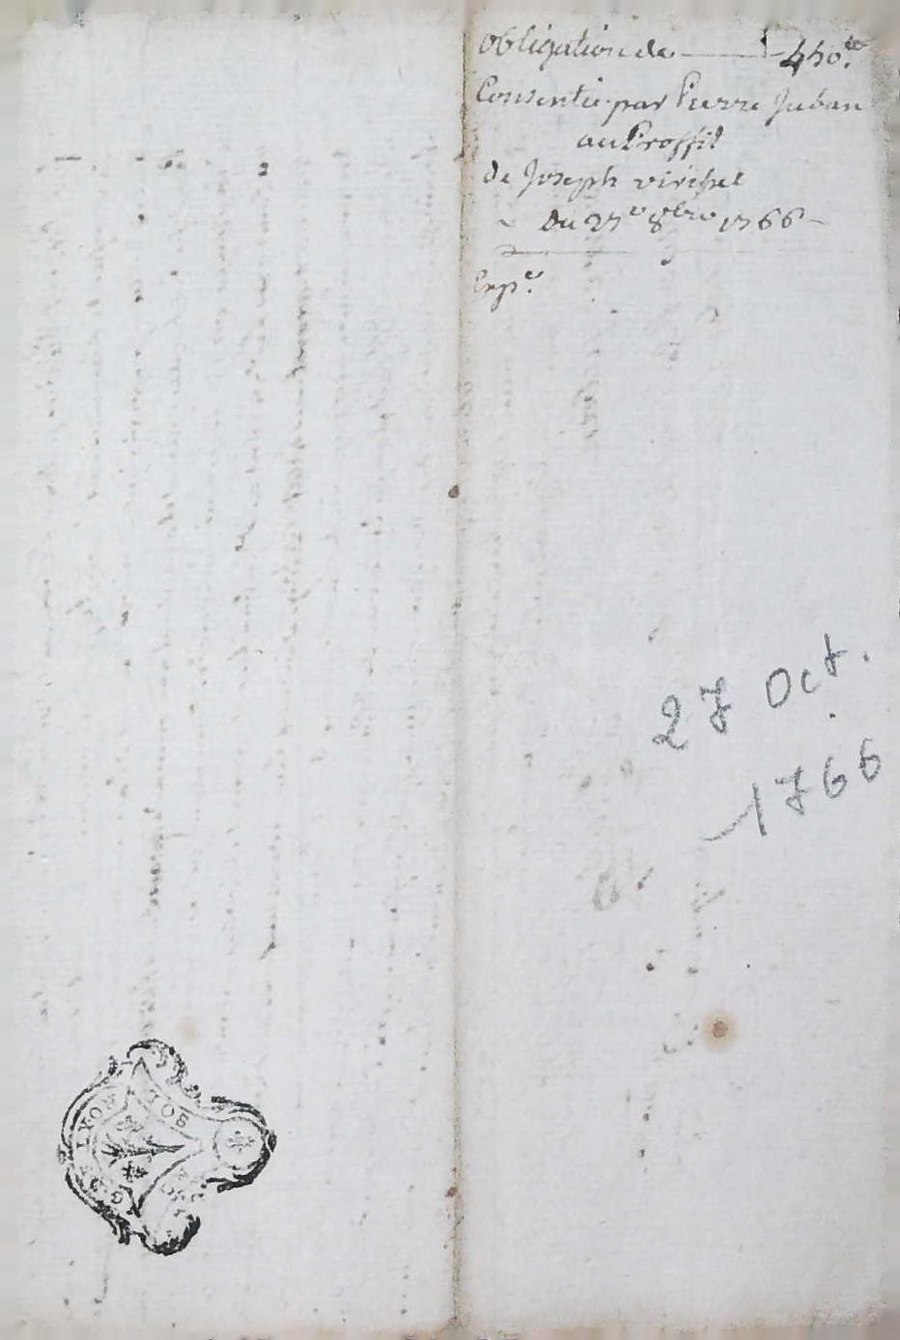 obligation de 450.tt
Consentie par Pierre Juban
au Proffit
de Joseph
du 27e 8bre 1766
Expe.
27 Oct.
1766
GEN LYON
SOL